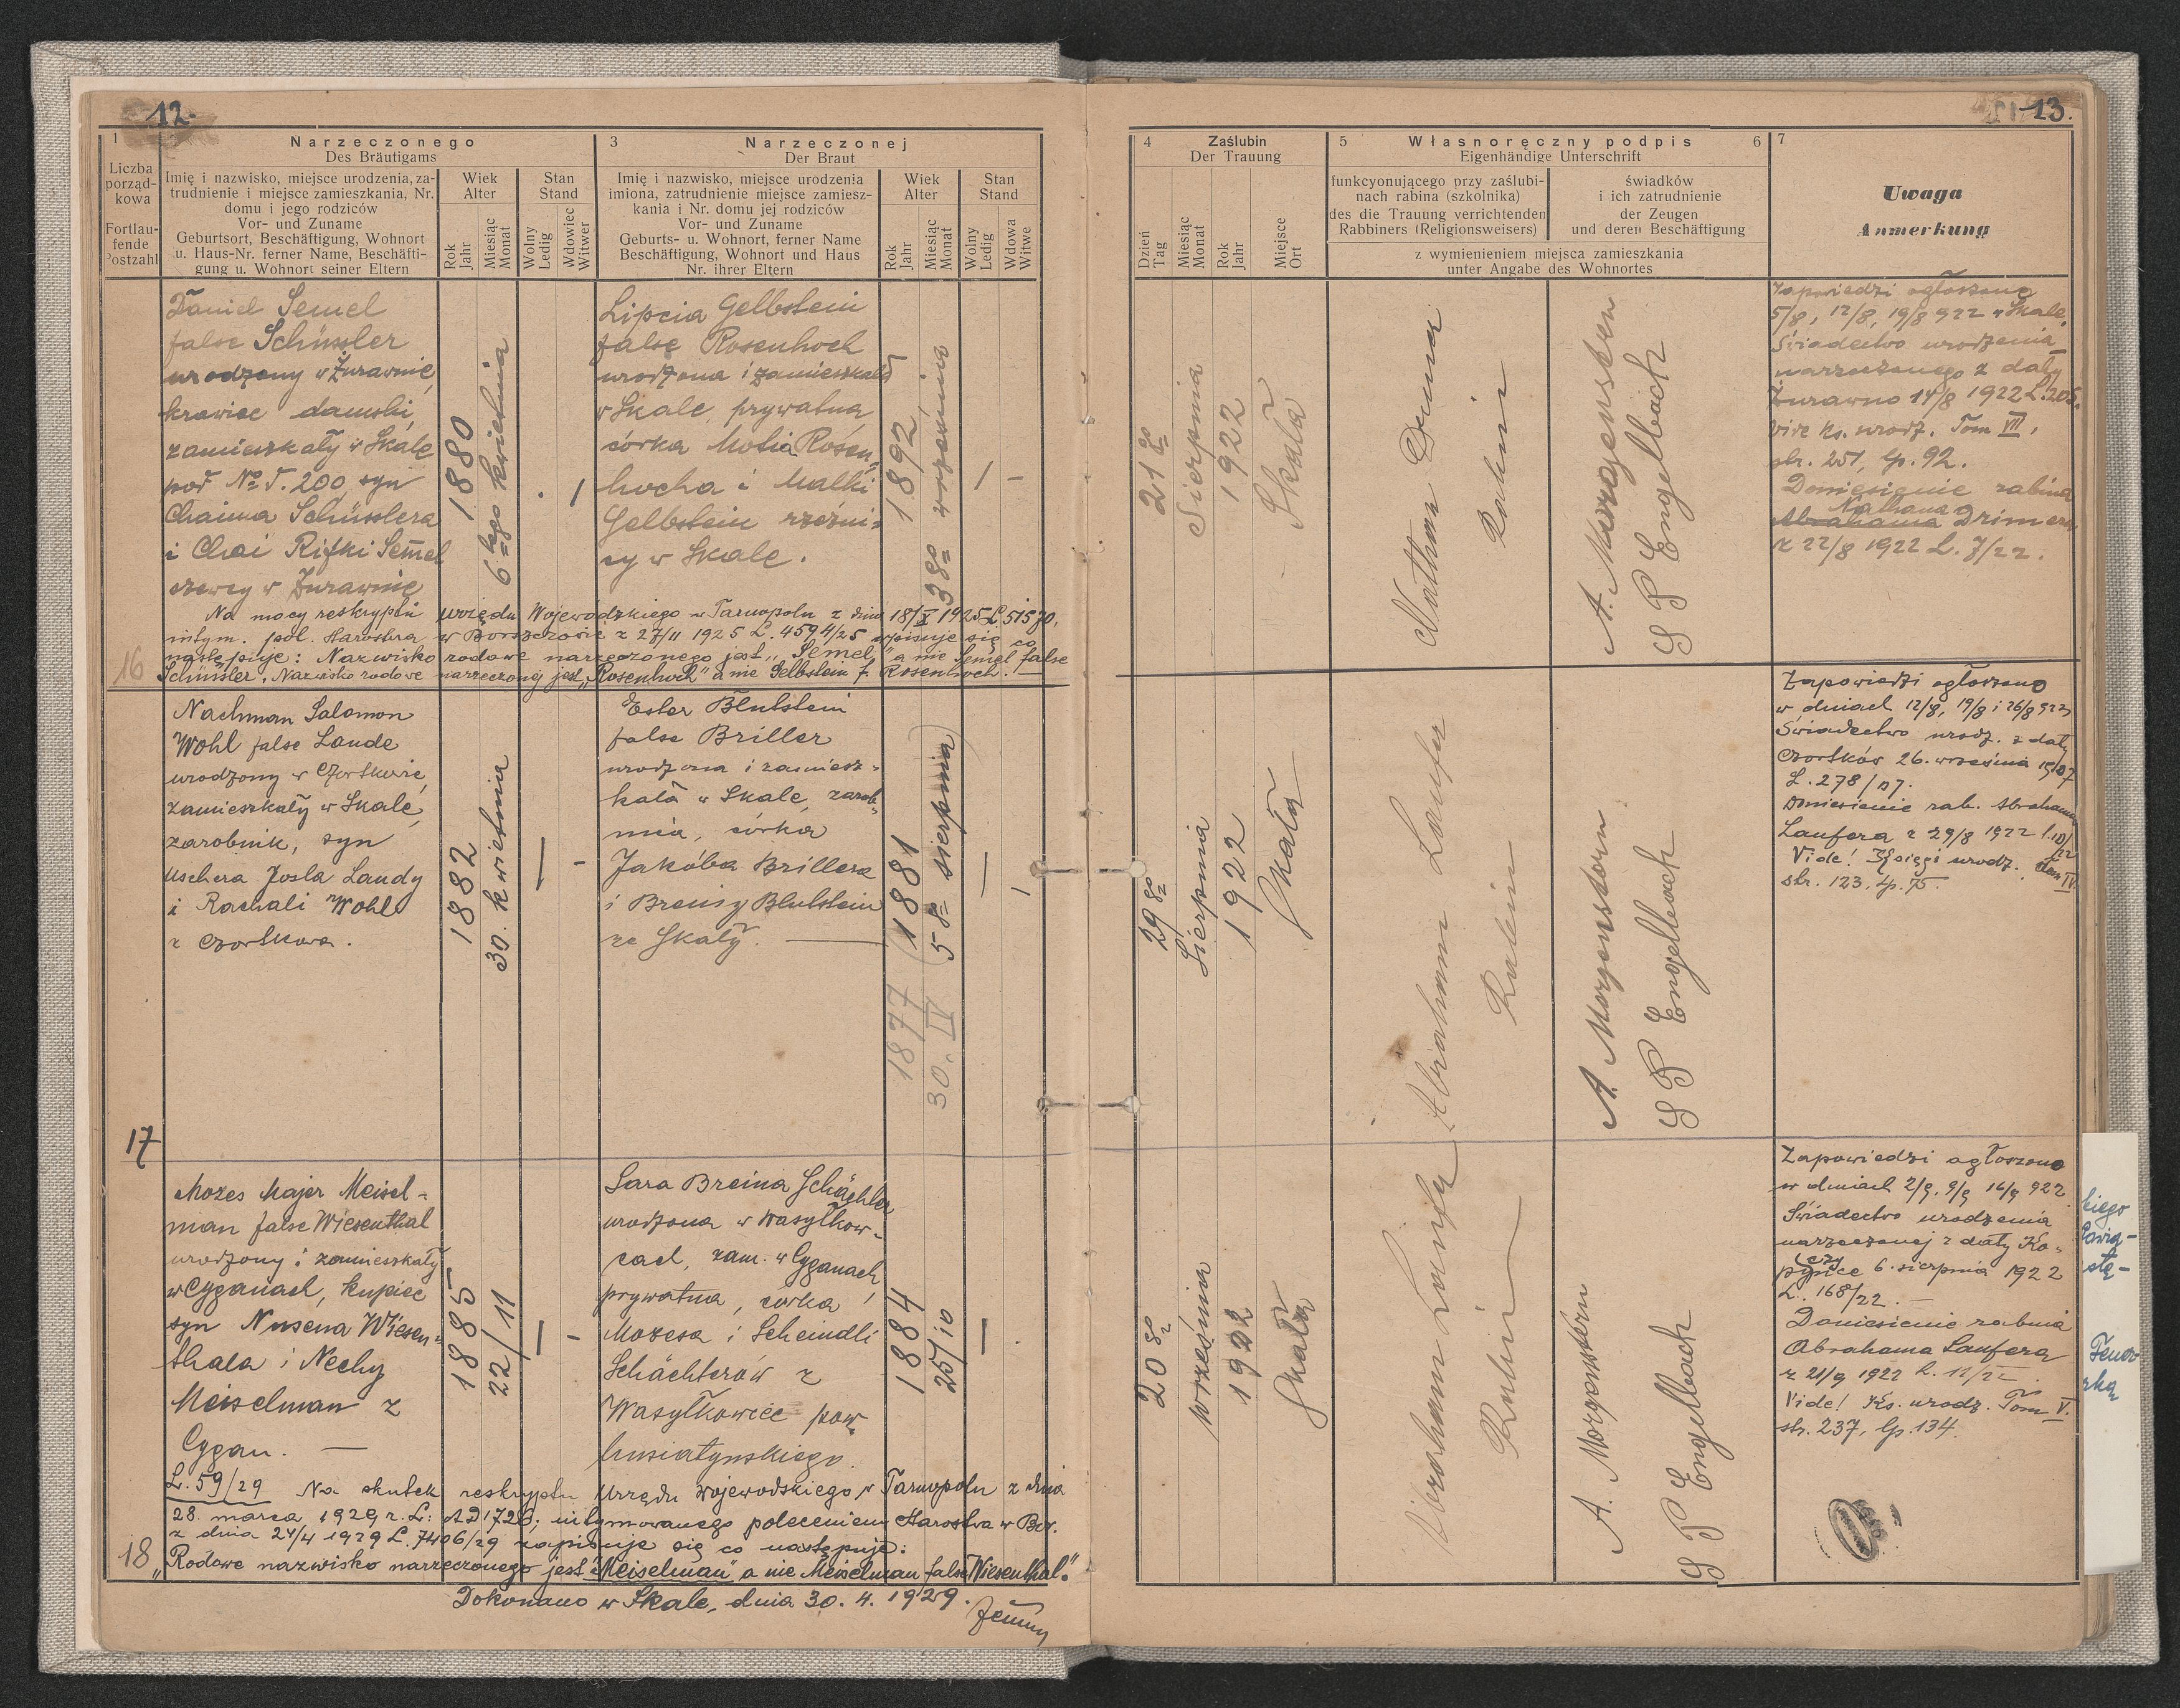 12.
1
Liczba
porząd-
kowa
Fortlau-
fende
Postzahl
Narzeczonego
Des Bräutigams
Imię i nazwisko, miejsce urodzenia, za-
trudnienie i miejsce zamieszkania, Nr.
domu i jego rodziców
Vor- und Zuname
Geburtsort, Beschäftigung, Wohnort
u. Haus-Nr. ferner Name, Beschäfti-
gung u. Wohnort seiner Eltern
Wiek
Alter
Rok
Jahr
Miesiąc
Monat
Stan
Stand
Wolny
Ledig
Wdowiec
Witwer
3
Narzeczonej
Der Braut
Imię i nazwisko, miejsce urodzenia
imiona, zatrudnienie miejsce zamiesz-
kania i Nr. domu jej rodziców
Vor- und Zuname
Geburts- u. Wohnort, ferner Name
Beschäftigung, Wohnort und Haus
Nr. ihrer Eltern
Wiek
Alter
Rok
Jahr
Miesiąc
Monat
Stan
Stand
Wolny
Ledig
Wdowa
Witwe
Daniel Semel
false Schüssler
urodzony w Żurawnie,
krawiec damski,
zamieszkały w Skale
pod No D. 200, syn
Chaima Schüsslera
i Chai Rifki Semel
szewcy w Żurawnie
1880
6-tego kwietnia
Lipcia Gelbstein
false Rosenhoch
urodzona i zamieszkała
w Skale, prywatna,
córka Motia Rosen-
hocha i Malki
Gelbstein rzeźni-
cy w Skale.
1892
3go września
Na mocy reskryptu urzędu Wojewódzkiego w Tarnopolu z dnia 18/X 1925 L. 51570,
intym. pol. Starostwa w Borszczowie z 27/11 1925 L. 4594/25 wpisuje się co
następuje: Nazwisko rodowe narzeczonego jest "Semel" a nie Semel false
Schüssler. Nazwisko rodowe narzeczonej jest "Rosenhoch" a nie Gelbstein f. Rosenhoch.
16
Nachman Salomon
Wohl false Lande
urodzony w Czortkowie,
zamieszkały w Skale,
zarobnik, syn
Uschera Josla Landy
i Rachali Wohl
z Czortkowa.
1882
30. kwietnia
Ester Blutstein
false Briller
urodzona i zamiesz-
kała w Skale, zarob-
nica, córka
Jakóba Brillera
i Breiny Blutstein
ze Skały.
(1881
5go sierpnia)
1877
30. IV
17
Mozes Majer Meisel-
man false Wiesenthal
urodzony i zamieszkały
w Cyganach, kupiec
syn Nusena Wiesen-
thala i Nechy
Meiselman z
Cygan.
1885
22/11
Sara Breina Schächter
urodzona w Wasylkow-
cach, zam. w Cyganach,
prywatna, córka
Mozesa i Scheindli
Schächterów z
Wasylkowiec pow.
husiatynskiego.
1884
25/10
L. 59/29 Na skutek reskryptu Urzędu Wojewodskiego w Tarnopolu z dnia
28. marca 1929 r. L: AD 1726, intymowanego poleceniem Starostwa w Bor.
z dnia 24/4 1929 L. 7406/29 zapisuje się co następuje:
18 "Rodowe nazwisko narzeczonego jest "Meiselman" a nie Meiselman false Wiesenthal."
Dokonano w Skale, dnia 30. 4. 1929.
13.
4
Zaślubin
Der Trauung
Dzień
Tag
Miesiąc
Monat
Rok
Jahr
Miejsce
Ort
5 Własnoręczny podpis 6
Eigenhändige Unterschrift
funkcyonującego przy zaślubi-
nach rabina (szkolnika)
des die Trauung verrichtenden
Rabbiners (Religionsweisers)
świadków
i ich zatrudnienie
der Zeugen
und deren Beschäftigung
z wymienieniem miejsca zamieszkania
unter Angabe des Wohnortes
7
Uwaga
Anmerkung
21go
Sierpnia
1922
Skała
Nathan Drimer
Rabin
A. Morgenstern
S P Engelbach
Zapowiedzi ogłoszono
5/8, 12/8, 19/8 922 w Skale.
Świadectwo urodzenia
narzeczonego z daty
Żurawno 14/8 1922 L. 205.
Vide ks. urodz. Tom VII,
str. 251, lp. 92.
Doniesienie rabina
Nathana
Abrahama Drimera
z 22/8 1922 L. 7/22.
29go
Sierpnia
1922
Skała
Abraham Laufer
Rabin
A. Morgenstern
S P Engelbach
Zapowiedzi ogłoszono
w dniach 12/8, 19/8 i 26/8 922
Świadectwo urodz. z daty
Czortków 26. września 1907
L. 278/07.
Doniesienie rab. Abrahama
Laufera z 29/8 1922 l. 10/22
Vide! Księgi urodz. Tom IV.
str. 123, lp. 75.
20go
września
1922
Skała
Abraham Laufer
Rabin
A. Morgenstern
S P Engelbach
Zapowiedzi ogłoszono
w dniach 2/9, 9/9 16/9 922
Świadectwo urodzenia
narzeczonej z daty Ko-
pyczyńce 6. sierpnia 1922
L. 168/22.
Doniesienie rabina
Abrahama Laufera
z 21/9 1922 L. 11/22.
Vide! Ks. urodz. Tom V.
str. 237, lp. 134.
kiego
stę-
rką